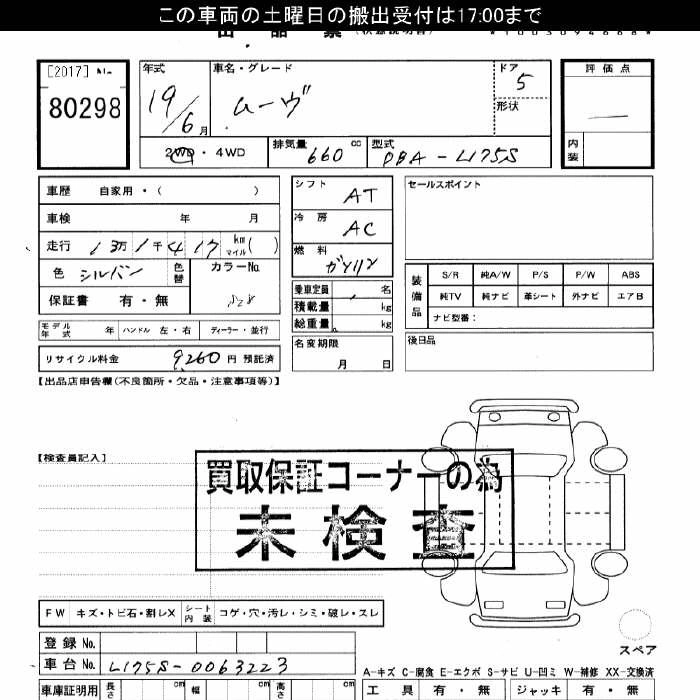 この車両の土曜日の搬出受付は17:00まで
[2017] No.
80298
年式 車名・グレード ドア 評価点
19/6月 ムーヴ 5 —
形状
2WD・4WD 排気量 660 cc 型式 DBA-L175S 内装
車歴 自家用・( ) シフト AT セールスポイント
車検 年 月 冷房 AC
走行 13万1千417 km マイル ( ) 燃料 ガソリン
色 シルバン 色替 カラーNo. S28 装備品 S/R 純A/W P/S P/W ABS
保証書 有・無 乗車定員 名 純TV 純ナビ 革シート 外ナビ エアB
積載量 kg ナビ型番:
総重量 kg
モデル年式 年 ハンドル 左・右 ディーラー・並行 名変期限 月 日 後日品
リサイクル料金 9,260 円 預託済
【出品店申告欄(不良箇所・欠品・注意事項等)】
【検査員記入】
買取保証コーナーの為
未検査
FW キズ・トビ石・割レX シート内装 コゲ・穴・汚レ・シミ・破レ・スレ
スペア
登録No.
車台No. L175S-0063223
A-キズ C-腐食 E-エクボ S-サビ U-凹ミ W-補修 XX-交換済
車庫証明用 長さ cm 幅 cm 高さ cm 工具 有・無 ジャッキ 有・無